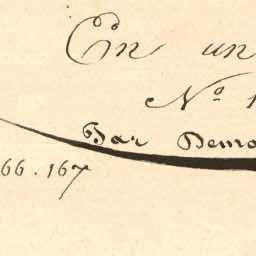 En un
No 1
Par Demo
66.167